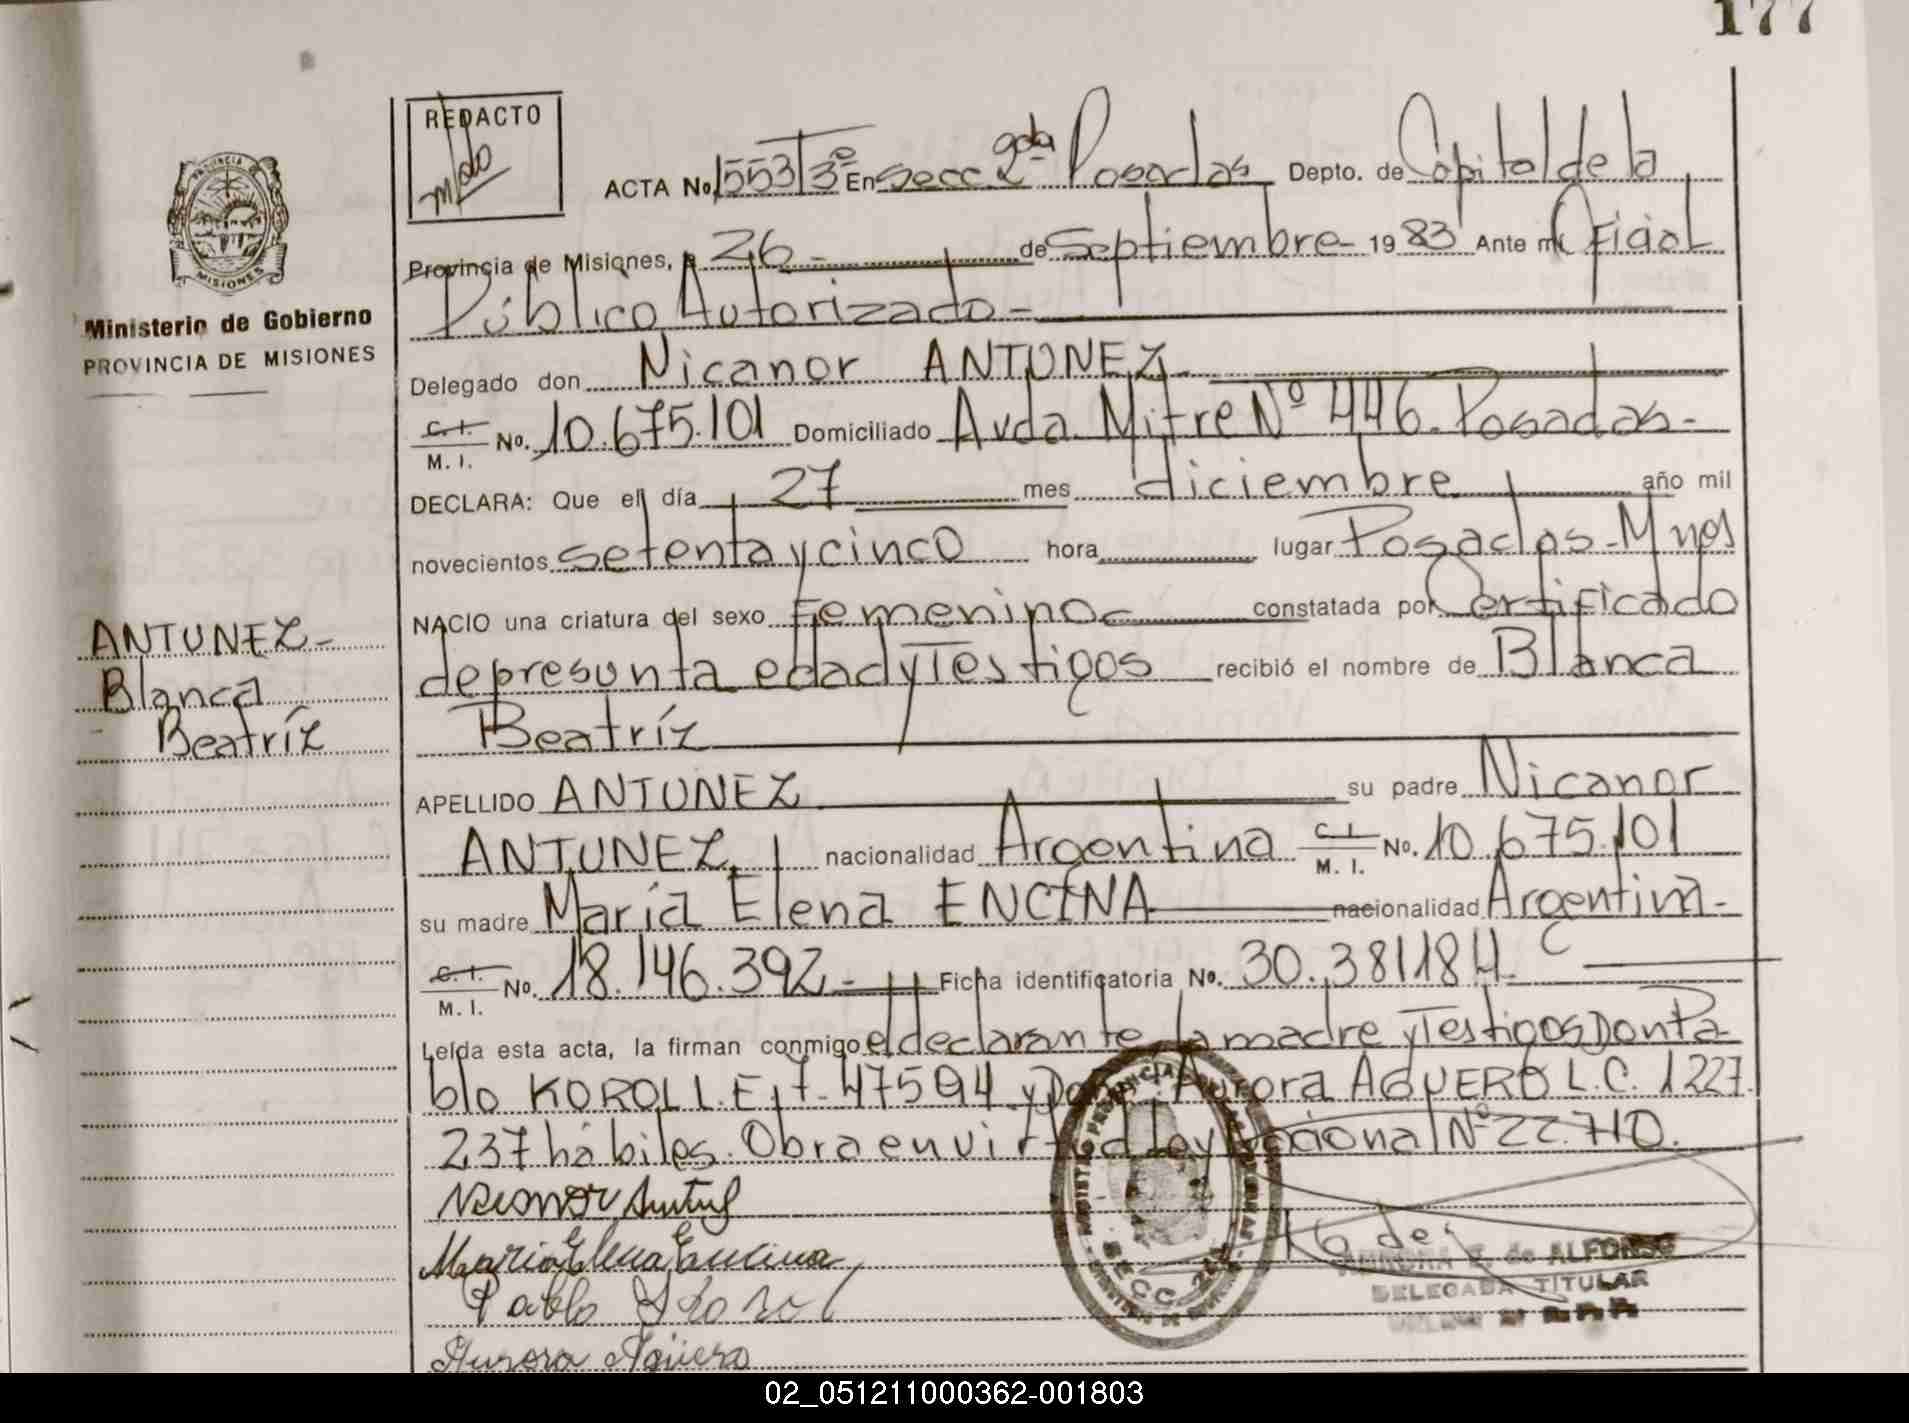 177
REDACTO
mldo
ACTA No. 1553 T3º En Secc 2da Posadas Depto. de Capital de la
Provincia de Misiones, a 26 - de Septiembre - 1983 Ante mi Oficial
Público Autorizado -
Delegado don Nicanor ANTUNEZ
C. I. M. I. No. 10.675.101 Domiciliado Avda. Mitre Nº 446. Posadas -
DECLARA: Que el día 27 mes diciembre año mil
novecientos setenta y cinco hora lugar Posadas - Mnes
NACIO una criatura del sexo Femenino constatada por Certificado
de presunta edad y Testigos recibió el nombre de Blanca
Beatríz
APELLIDO ANTUNEZ su padre Nicanor
ANTUNEZ nacionalidad Argentina C. I. M. I. No. 10.675.101
su madre María Elena ENCINA nacionalidad Argentina -
C. I. M. I. No. 18.146.392 - Ficha identificatoria No. 30.381184
Leída esta acta, la firman conmigo el declarante, la madre y Testigos Don Pa
blo KOROLL.E, 7.475.94 y Aurora AGUERO L.C. 1.227.
237 hábiles. Obra en Ley Nacional Nº 22.710.
Maria Elena Encina
Pablo
Aurora Agüero
SECC. 2da
de ALFONSO
DELEGADA TITULAR
PROVINCIA
MISIONES
Ministerio de Gobierno
PROVINCIA DE MISIONES
ANTUNEZ -
Blanca
Beatríz
02_051211000362-001803